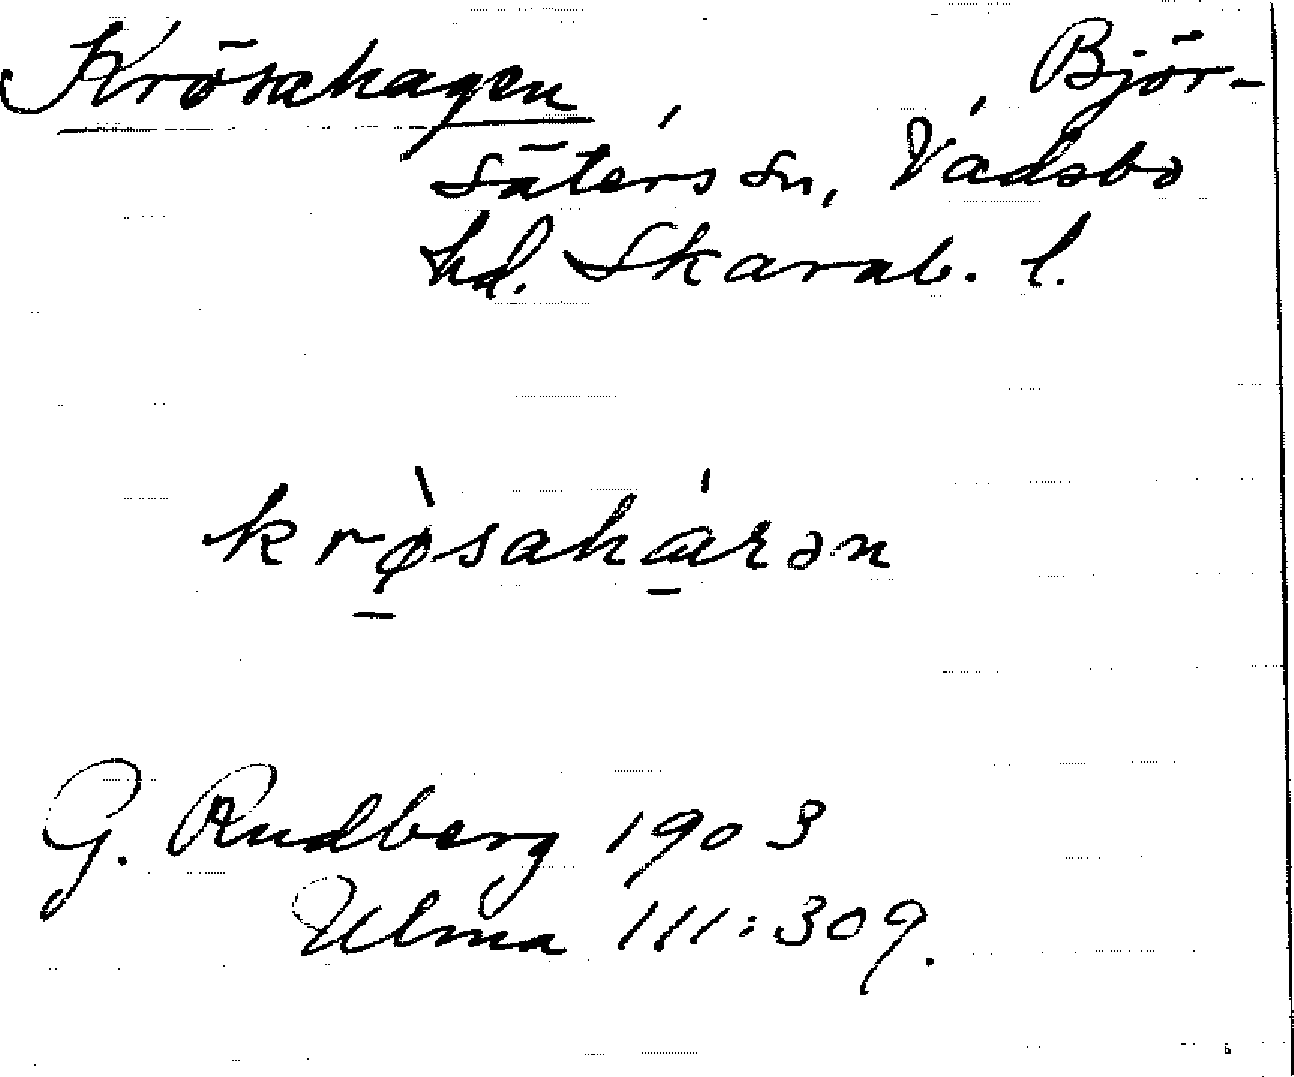 Krösahagen, , Björ-
säters sn, Vadsbo
hd. Skarab. l.
krø̀sahárən
G. Rudberg 1903
Ulma 111:309.